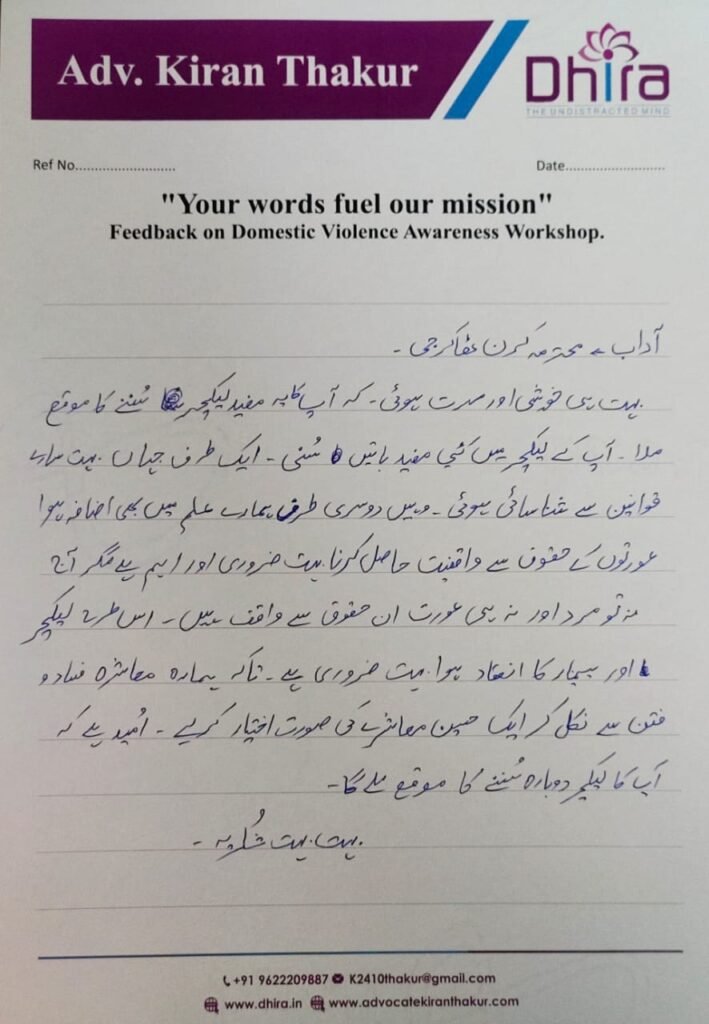 Adv. Kiran Thakur
Dhira
THE UNDISTRACTED MIND
Ref No.......................... Date..........................
"Your words fuel our mission"
Feedback on Domestic Violence Awareness Workshop.
آداب محترمہ کرن ٹھاکر جی ۔
بہت ہی خوشی اور مسرت ہوئی ۔ کہ آپ کا یہ مفید لیکچر سُننے کا موقع
ملا ۔ آپ کے لیکچر میں کئی مفید باتیں سُنی ۔ ایک طرف جہاں بہت سارے
قوانین سے شناسائی ہوئی ۔ وہیں دوسری طرف ہمارے علم میں بھی اضافہ ہوا
عورتوں کے حقوق سے واقفیت حاصل کرنا بہت ضروری اور اہم ہے مگر آج
نہ تو مرد اور نہ ہی عورت ان حقوق سے واقف ہیں ۔ اس طرح لیکچر
اور سیمار کا انعقاد ہوا بہت ضروری ہے ۔ تاکہ ہمارہ معاشرہ فساد و
فتن سے نکل کر ایک حسین معاشرے کی صورت اختیار کر لے ۔ اُمید ہے کہ
آپ کا لیکچر دوبارہ سُننے کا موقع ملے گا ۔
بہت بہت شُکریہ ۔
+91 9622209887 K2410thakur@gmail.com
www.dhira.in www.advocatekiranthakur.com